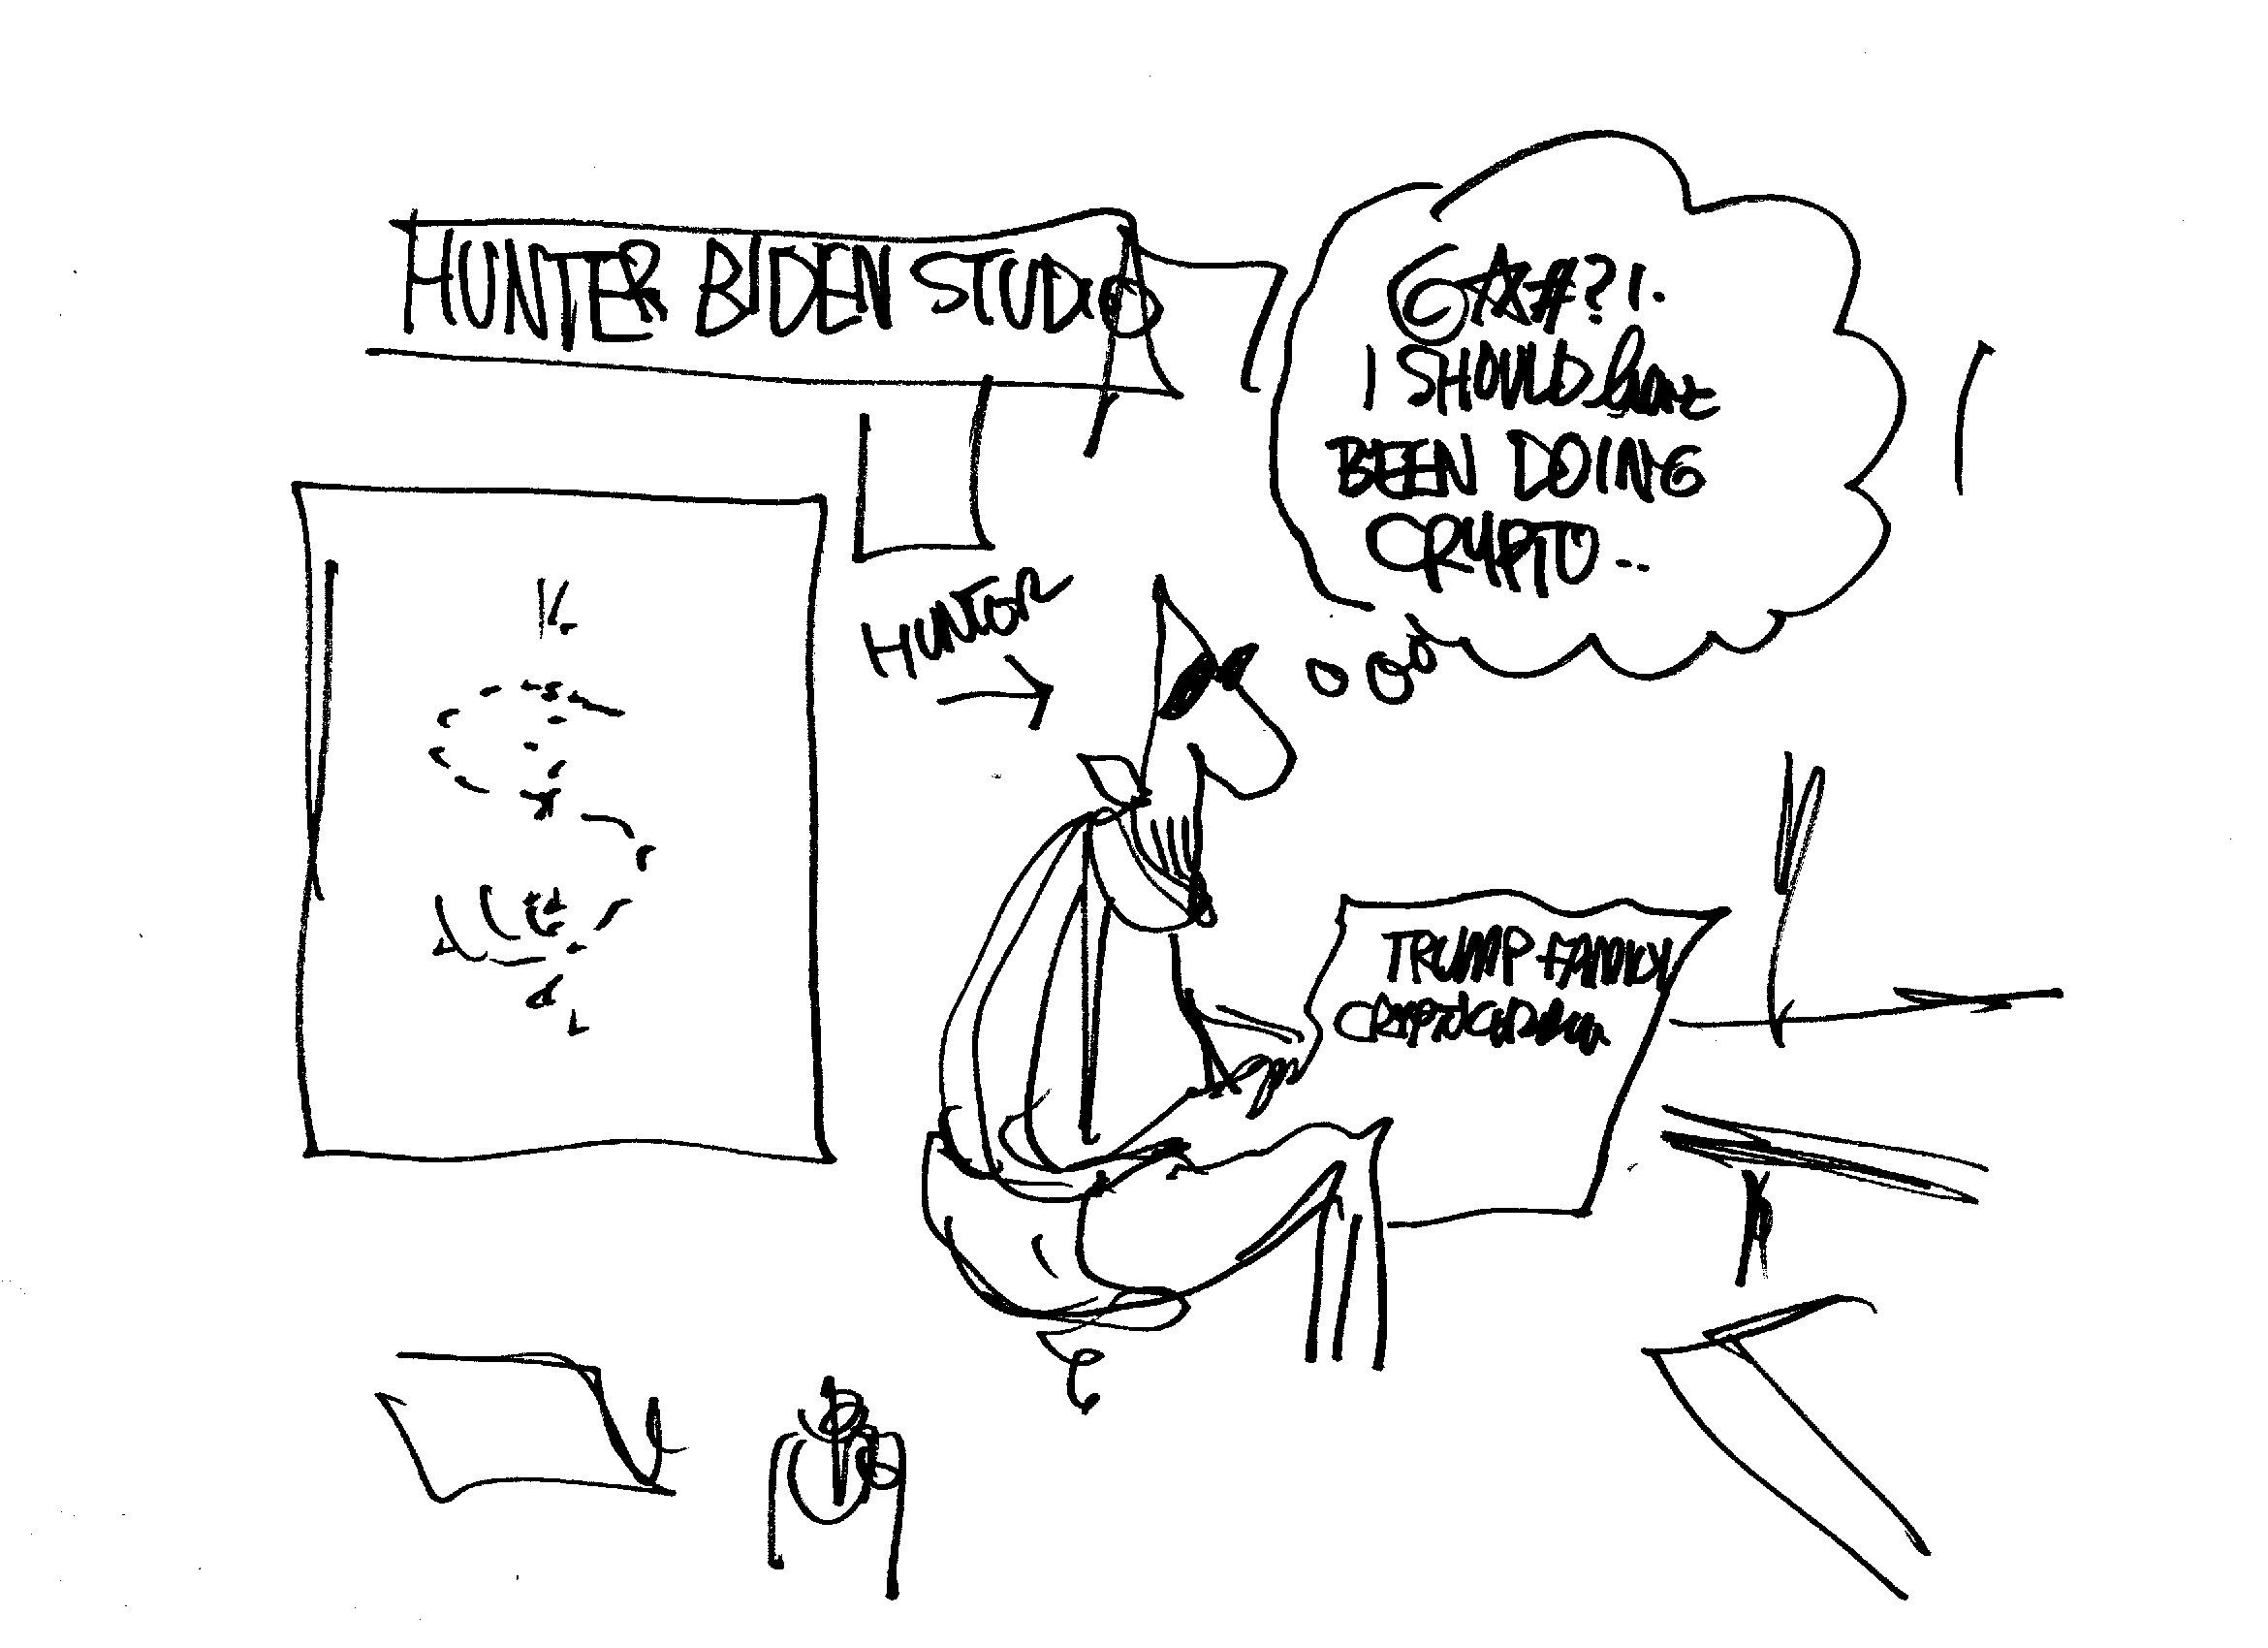 HUNTER BIDEN STUDIO
@*#?!.
I SHOULD have
BEEN DOING
CRYPTO...
HUNTOR
TRUMP FAMILY